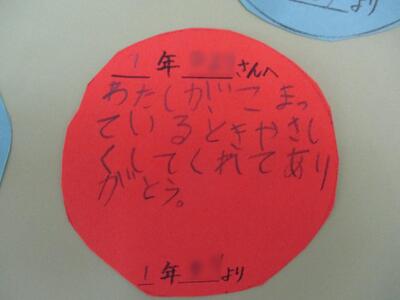 より
1年 さんへ
わたしがこまっ
ているときやさし
くしてくれてあり
がとう。
1年 より